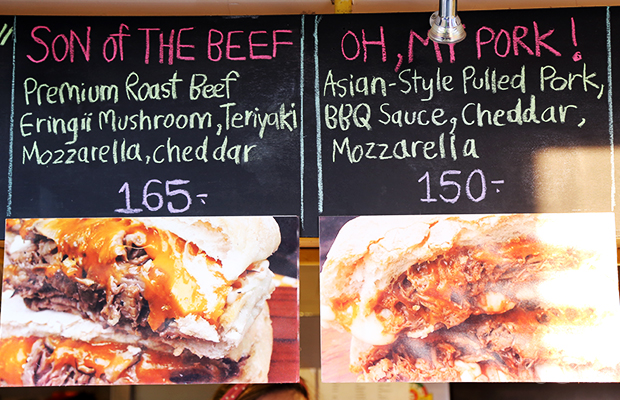 SON of THE BEEF
Premium Roast Beef
Eringii Mushroom, Teriyaki
Mozzarella, cheddar
165.-
OH, MY PORK!
Asian-Style Pulled Pork,
BBQ Sauce, Cheddar,
Mozzarella
150.-